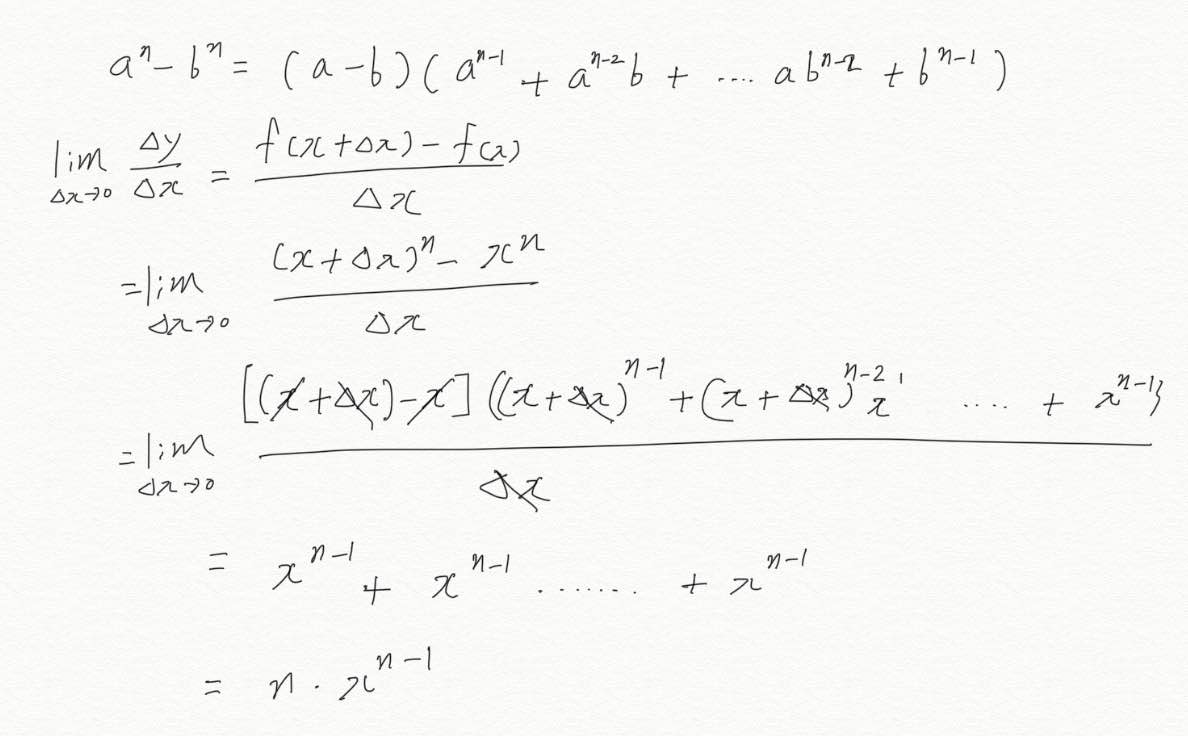 aⁿ − bⁿ = (a − b)(aⁿ⁻¹ + aⁿ⁻²b + .... abⁿ⁻² + bⁿ⁻¹)
lim Δx→0 Δy/Δx = (f(x+Δx) − f(x))/Δx
= lim Δx→0 ((x+Δx)ⁿ − xⁿ)/Δx
= lim Δx→0 [(x+Δx)−x]((x+Δx)ⁿ⁻¹ + (x+Δx)ⁿ⁻² x¹ .... + xⁿ⁻¹}/Δx
= xⁿ⁻¹ + xⁿ⁻¹ ....... + xⁿ⁻¹
= n · xⁿ⁻¹